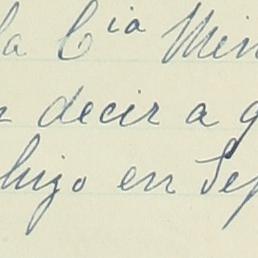 la Cia Min
decir a
hizo en Sep